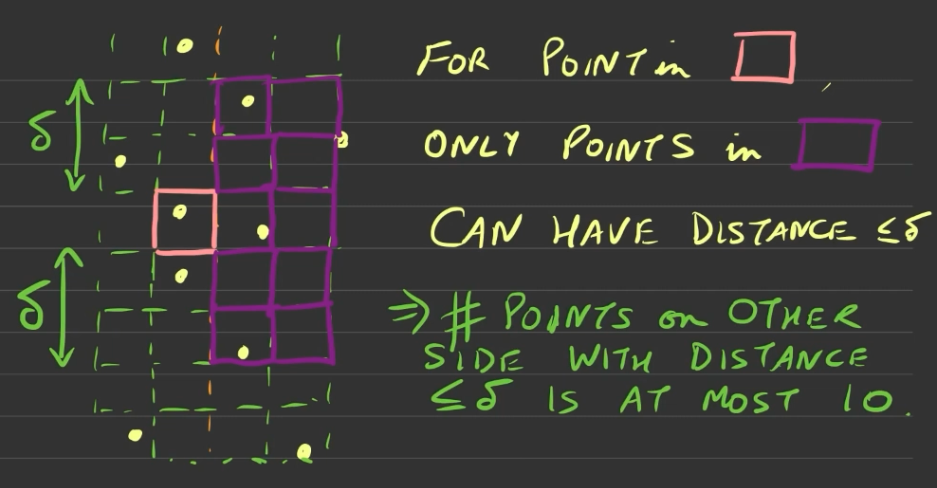 FOR POINT in
ONLY POINTS in
CAN HAVE DISTANCE ≤δ
δ
δ
⇒ # POINTS on OTHER
SIDE WITH DISTANCE
≤δ IS AT MOST 10.